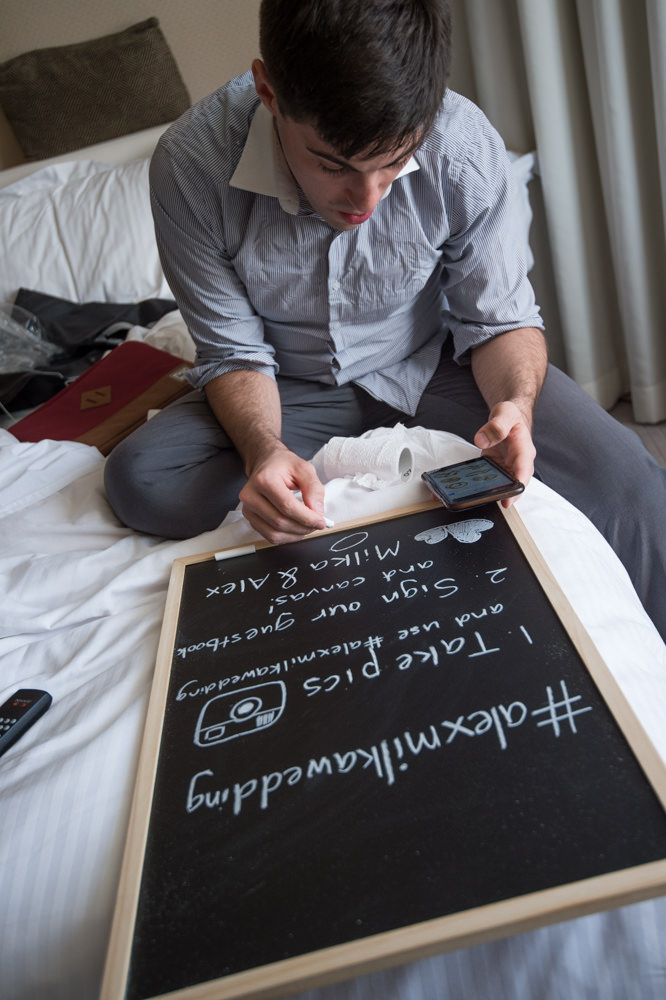 #alexmilkawedding
1. Take pics
and use #alexmilkawedding
2. Sign our guestbook
and canvas!
Milka & Alex